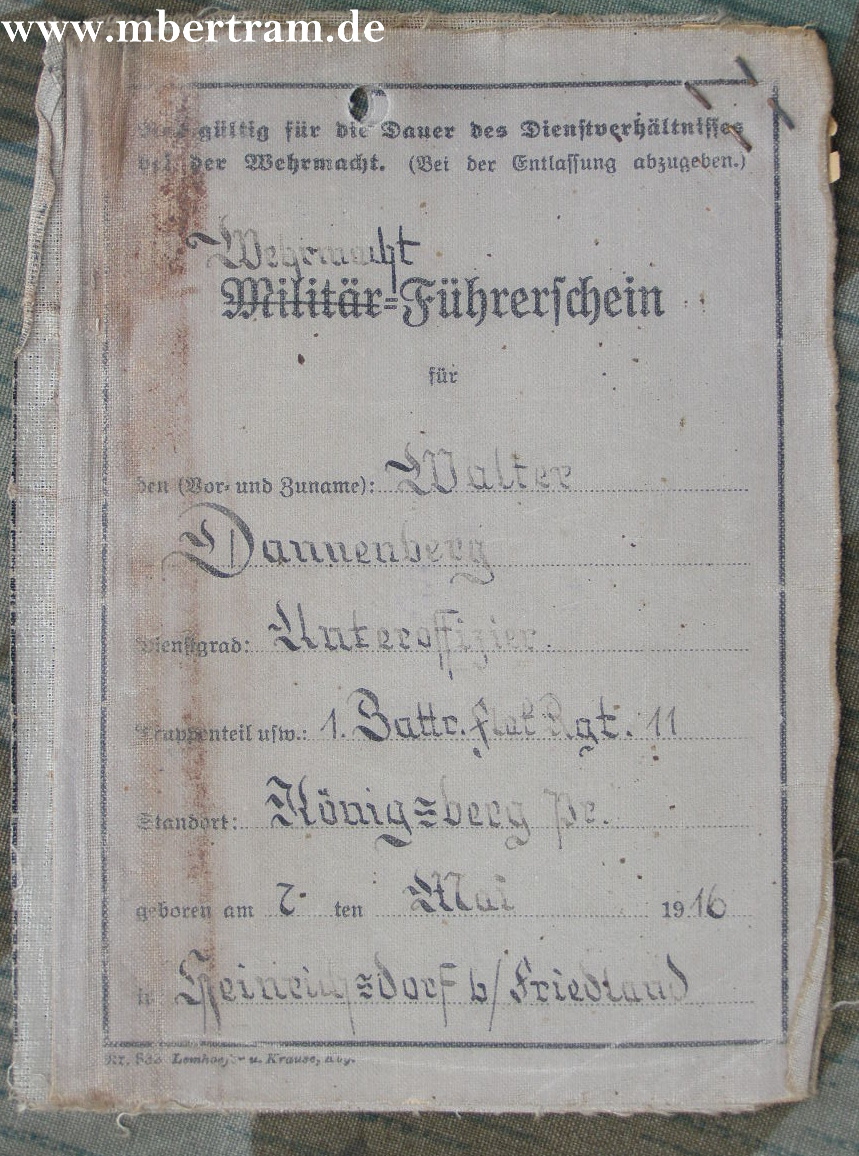 www.mbertram.de
Nur gültig für die Dauer des Dienstverhältnisses
bei der Wehrmacht. (Bei der Entlassung abzugeben.)
Wehrmacht
Militär=Führerschein
für
den (Vor- und Zuname): Walter
Dannenberg
Dienstgrad: Unteroffizier.
Truppenteil usw.: 1. Battr. flak Rgt. 11
Standort: Königsberg Pr.
geboren am 7. ten Mai 1916
in Heinrichsdorf b/Friedland
u. Krause,